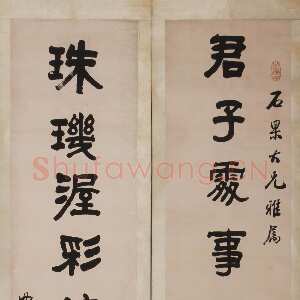 石果大兄雅屬
君子處事
珠璣渥彩
Shufawang.CN